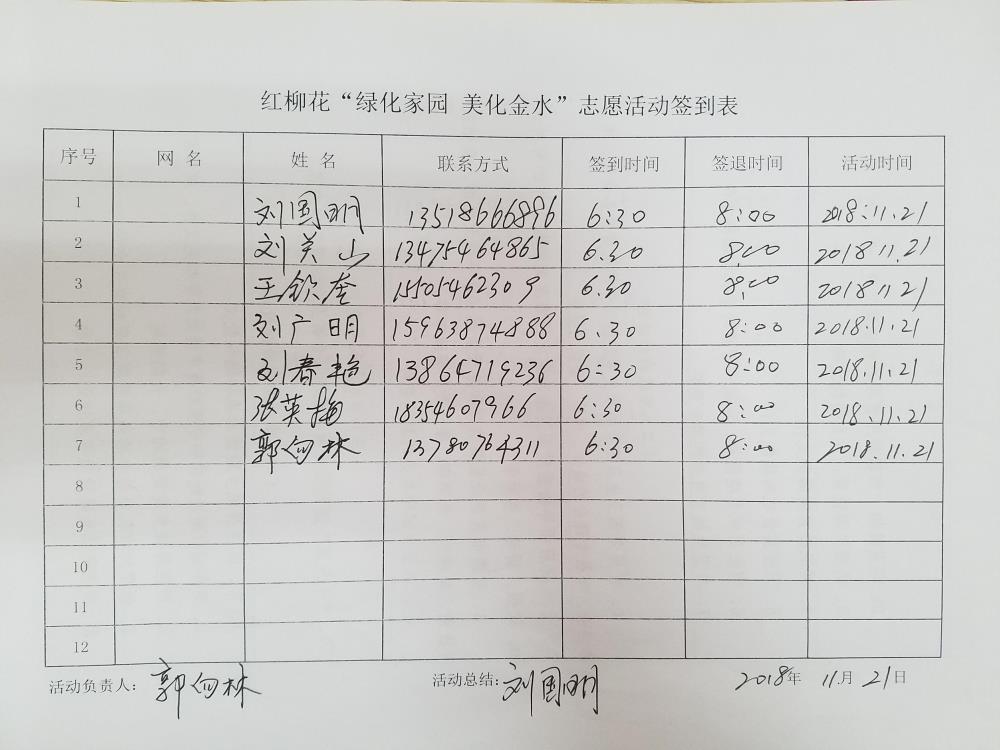 红柳花“绿化家园 美化金水”志愿活动签到表
序号 网 名 姓 名 联系方式 签到时间 签退时间 活动时间
1 刘国明 13518666896 6:30 8:00 2018.11.21
2 刘关山 13475464865 6.30 8.00 2018 11.21
3 王钦奎 15505462309 6.30 8.00 2018 11 21
4 刘广明 15963874888 6.30 8:00 2018.11.21
5 刘春艳 13864719236 6:30 8:00 2018.11.21
6 张英梅 18354607966 6:30 8:00 2018.11.21
7 郭向林 13780764311 6:30 8:00 2018.11.21
8
9
10
11
12
活动负责人: 郭向林 活动总结: 刘国明 2018年 11月 21日